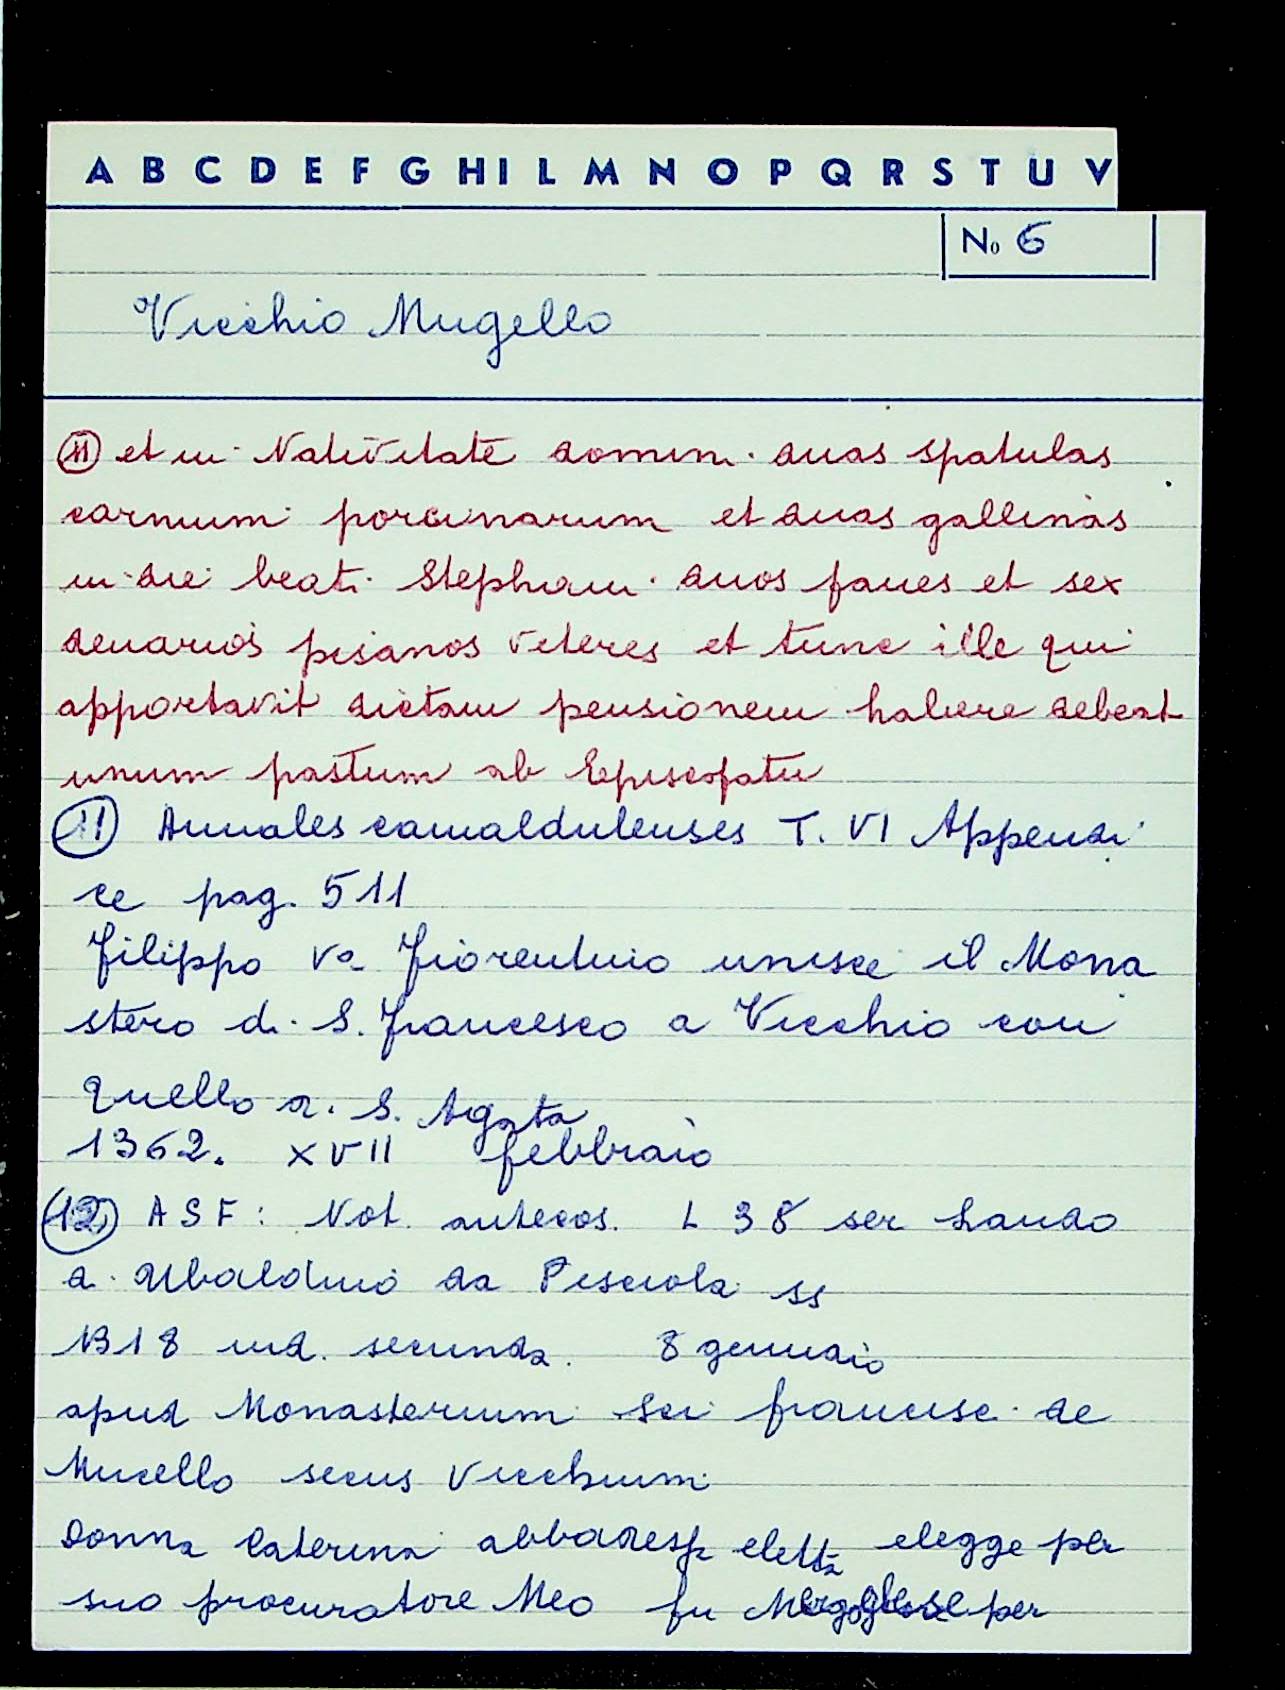 A B C D E F G H I L M N O P Q R S T U V
No 6
Vicchio Mugello
11 et in Nativitate domini duas spatulas
carnium porcinarum et duas gallinas
in die beati Stephani duos panes et sex
denarios pisanos veteres et tunc ille qui
apportavit dictam pensionem habere debeat
unum pastum ab Episcopatu
11 Annales camaldulenses T. VI Appendi
ce pag. 511
Filippo Vo Fiorentino unisce il Mona
stero di S. Francesco a Vicchio con
quello di S. Agata
1362. XVII febbraio
12 ASF: Not. antecos. L 38 ser Lando
di Ubaldino da Pesciola ss
1318 ind. secunda. 8 gennaio
apud Monasterium Sci francisci de
Mucello secus Vicchium
Donna Caterina abbadessa eletta elegge per
suo procuratore Meo fu per